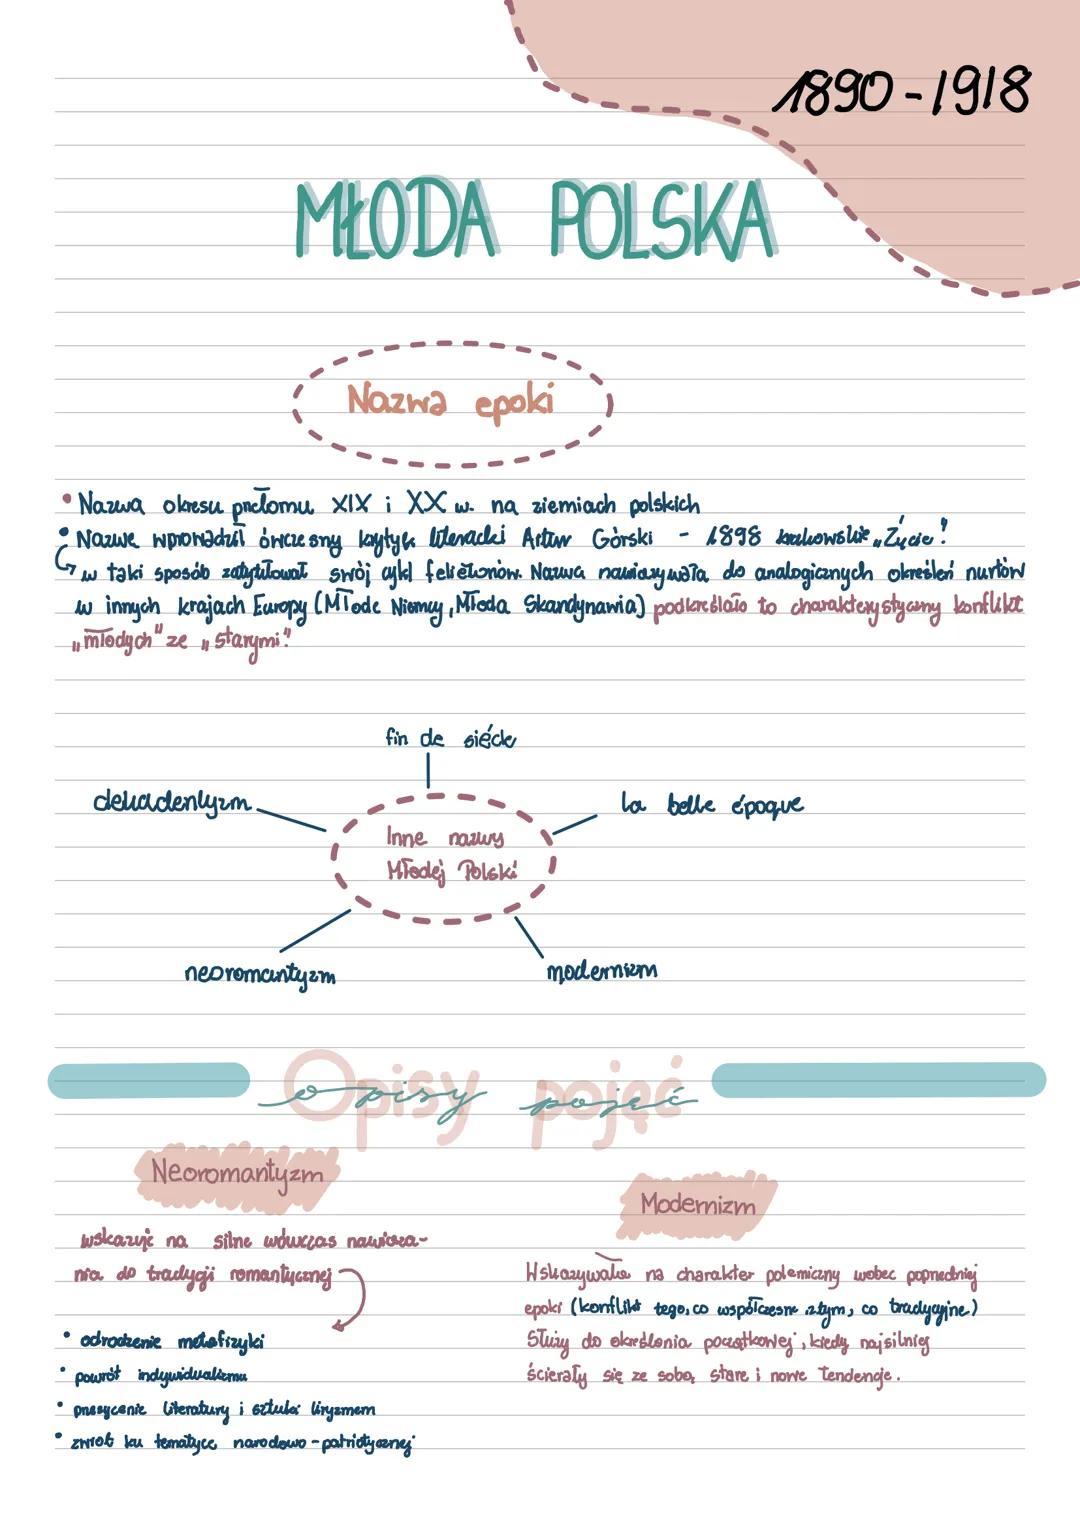 1890-1918
MŁODA POLSKA
Nazwa epoki
• Nazwa okresu przełomu XIX i XX w. na ziemiach polskich
• Nazwę wprowadził ówczesny krytyk literacki Artur Górski - 1898 krakowskie „Życie".
↳ w taki sposób zatytułował swój cykl felietonów. Nazwa nawiązywała do analogicznych określeń nurtów
w innych krajach Europy (Młode Niemcy, Młoda Skandynawia) podkreślało to charakterystyczny konflikt
„młodych" ze „starymi".
fin de siécle
dekadentyzm
la belle époque
Inne nazwy
Młodej Polski
neoromantyzm
modernizm
Opisy pojęć
opisy pojęć
Neoromantyzm
wskazuje na silne wówczas nawiąza-
nia do tradycji romantycznej
• odrodzenie metafizyki
• powrót indywidualizmu
• przesycenie literatury i sztuki liryzmem
• zwrot ku tematyce narodowo-patriotycznej
Modernizm
Wskazywała na charakter polemiczny wobec poprzedniej
epoki (konflikt tego, co współczesne z tym, co tradycyjne)
Służy do określenia początkowej, kiedy najsilniej
ścierały się ze sobą stare i nowe tendencje.